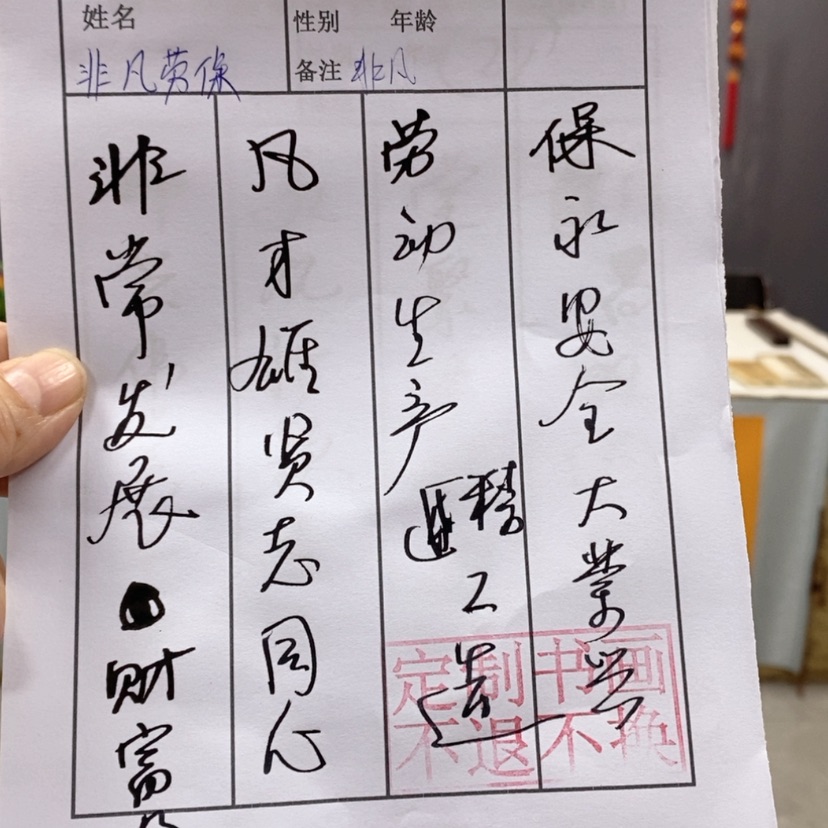 姓名
性别 年龄
非凡劳保
备注 非凡
非常发展财富
凡才雄贤志同心
劳动生产精工造
保永安全大業兴
定制书画
不退不换